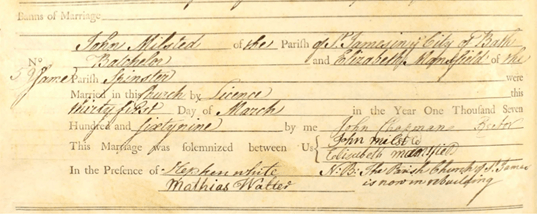 Banns of Marriage
John Milsted of the Parish of St. James in ye City of Bath
No. Batchelor and Elizabeth Mansfield of the
St James Parish Spinster were
Married in this Church by Licence this
thirty first Day of March in the Year One Thousand Seven
Hundred and sixty nine by me John Chapman Rector
This Marriage was solemnized between Us John Milsted
Elisabeth mansfield
In the Presence of Stephen white N:B: The Parish Church of St. James
Mathias Walter is now in rebuilding